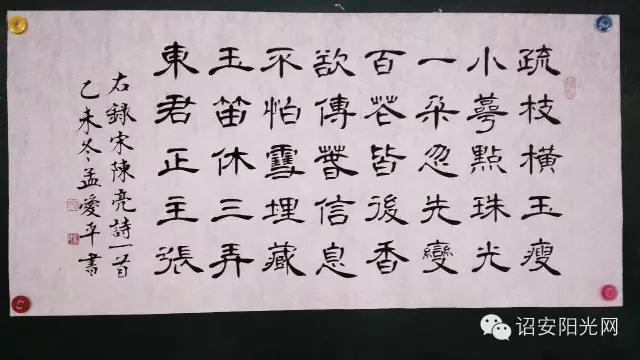 疏枝橫玉瘦
小萼點珠光
一朵忽先變
百花皆後香
欲傳春信息
不怕雪埋藏
玉笛休三弄
東君正主張
右錄宋陳亮詩一首
乙未冬孟愛平書
诏安阳光网